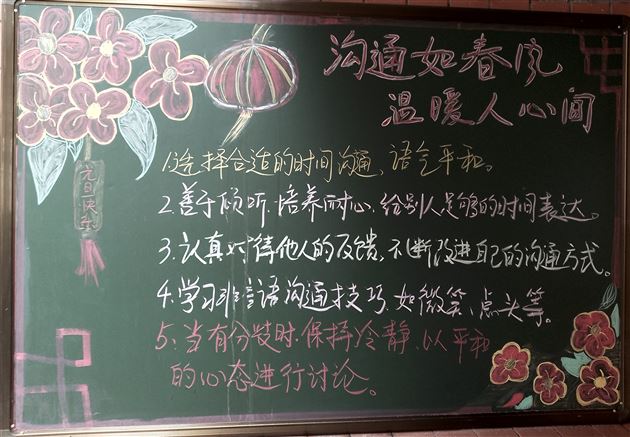 沟通如春风
温暖人心间
元旦快乐
1.选择合适的时间沟通，语气平和。
2.善于倾听，培养耐心，给别人足够的时间表达。
3.认真对待他人的反馈，不断改进自己的沟通方式。
4.学习非言语沟通技巧，如微笑、点头等。
5.当有分歧时，保持冷静，以平和
的心态进行讨论。